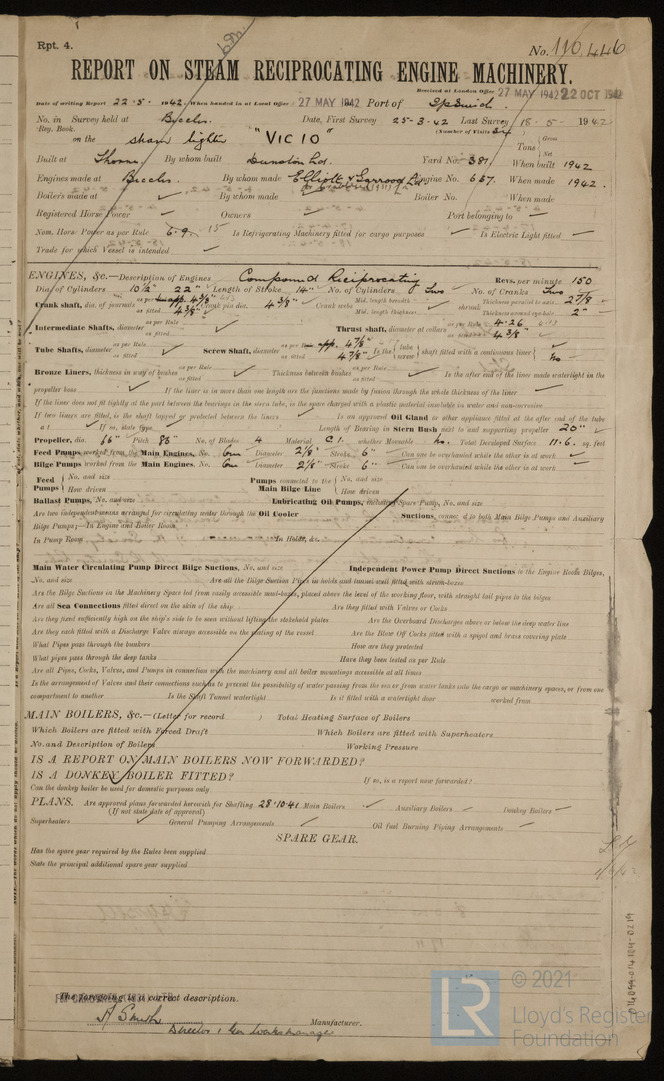 Rpt. 4.
No. 110,446
REPORT ON STEAM RECIPROCATING ENGINE MACHINERY.
Received at London Office 27 MAY 1942 22 OCT 1942
Date of writing Report 22-5- 1942. When handed in at Local Office 27 MAY 1942 Port of Ipswich.
No. in Survey held at Beccles. Date, First Survey 25-3-42 Last Survey 18-5- 1942
Reg. Book. (Number of Visits
on the steam lighter "VIC 10" Tons Gross Net
Built at Thorne By whom built Dunston Ltd. Yard No. 381 When built 1942
Engines made at Beccles By whom made Elliott & Garrood Ltd. Engine No. 657. When made 1942.
Boilers made at By whom made Boiler No. When made
Registered Horse Power Owners Port belonging to
Nom. Horse Power as per Rule 6.9. 15 Is Refrigerating Machinery fitted for cargo purposes Is Electric Light fitted
Trade for which Vessel is intended
ENGINES, &c.—Description of Engines Compound Reciprocating Revs. per minute 150
Dia. of Cylinders 10½" 22" Length of Stroke 14" No. of Cylinders Two No. of Cranks Two
Crank shaft, dia. of journals as per Rule app. 4⅜" as fitted 4⅜" Crank pin dia. 4⅜" Crank webs Mid. length breadth Mid. length thickness shrunk Thickness parallel to axis 2⅞" Thickness around eye-hole 2"
Intermediate Shafts, diameter as per Rule as fitted Thrust shaft, diameter at collars as per Rule 4.26 as fitted 4⅜"
Tube Shafts, diameter as per Rule as fitted Screw Shaft, diameter as per Rule app. 4⅞" as fitted 4⅞" Is the {tube screw} shaft fitted with a continuous liner { no
Bronze Liners, thickness in way of bushes as per Rule as fitted Thickness between bushes as per Rule as fitted Is the after end of the liner made watertight in the
propeller boss If the liner is in more than one length are the junctions made by fusion through the whole thickness of the liner
If the liner does not fit tightly at the part between the bearings in the stern tube, is the space charged with a plastic material insoluble in water and non-corrosive
If two liners are fitted, is the shaft lapped or protected between the liners Is an approved Oil Gland or other appliance fitted at the after end of the tube
If so, state type Length of Bearing in Stern Bush next to and supporting propeller 20"
Propeller, dia. 66" Pitch 86" No. of Blades 4 Material C.I. whether Moveable no. Total Developed Surface 11.6. sq. feet
Feed Pumps worked from the Main Engines, No. One Diameter 2⅛" Stroke 6" Can one be overhauled while the other is at work
Bilge Pumps worked from the Main Engines, No. One Diameter 2⅛" Stroke 6" Can one be overhauled while the other is at work
Feed Pumps { No. and size How driven Pumps connected to the Main Bilge Line { No. and size How driven
Ballast Pumps, No. and size Lubricating Oil Pumps, including Spare Pump, No. and size
Are two independent means arranged for circulating water through the Oil Cooler Suctions, connected to both Main Bilge Pumps and Auxiliary
Bilge Pumps;—In Engine and Boiler Room
In Pump Room In Holds, &c.
Main Water Circulating Pump Direct Bilge Suctions, No. and size Independent Power Pump Direct Suctions to the Engine Room Bilges,
No. and size Are all the Bilge Suction Pipes in holds and tunnel well fitted with strum-boxes
Are the Bilge Suctions in the Machinery Space led from easily accessible mud-boxes, placed above the level of the working floor, with straight tail pipes to the bilges
Are all Sea Connections fitted direct on the skin of the ship Are they fitted with Valves or Cocks
Are they fixed sufficiently high on the ship's side to be seen without lifting the stokehold plates Are the Overboard Discharges above or below the deep water line
Are they each fitted with a Discharge Valve always accessible on the plating of the vessel Are the Blow Off Cocks fitted with a spigot and brass covering plate
What Pipes pass through the bunkers How are they protected
What pipes pass through the deep tanks Have they been tested as per Rule
Are all Pipes, Cocks, Valves, and Pumps in connection with the machinery and all boiler mountings accessible at all times
Is the arrangement of Valves and their connections such as to prevent the possibility of water passing from the sea or from water tanks into the cargo or machinery spaces, or from one
compartment to another Is the Shaft Tunnel watertight Is it fitted with a watertight door worked from
MAIN BOILERS, &c.—(Letter for record ) Total Heating Surface of Boilers
Which Boilers are fitted with Forced Draft Which Boilers are fitted with Superheaters
No. and Description of Boilers Working Pressure
IS A REPORT ON MAIN BOILERS NOW FORWARDED?
IS A DONKEY BOILER FITTED? If so, is a report now forwarded?
Can the donkey boiler be used for domestic purposes only
PLANS. Are approved plans forwarded herewith for Shafting 28.10.41 Main Boilers Auxiliary Boilers Donkey Boilers
(If not state date of approval)
Superheaters General Pumping Arrangements Oil fuel Burning Piping Arrangements
SPARE GEAR.
Has the spare gear required by the Rules been supplied
State the principal additional spare gear supplied
The foregoing is a correct description.
A Smith
Manufacturer.
Director & Gen Works manager
© 2021
LR
Lloyd's Register
Foundation